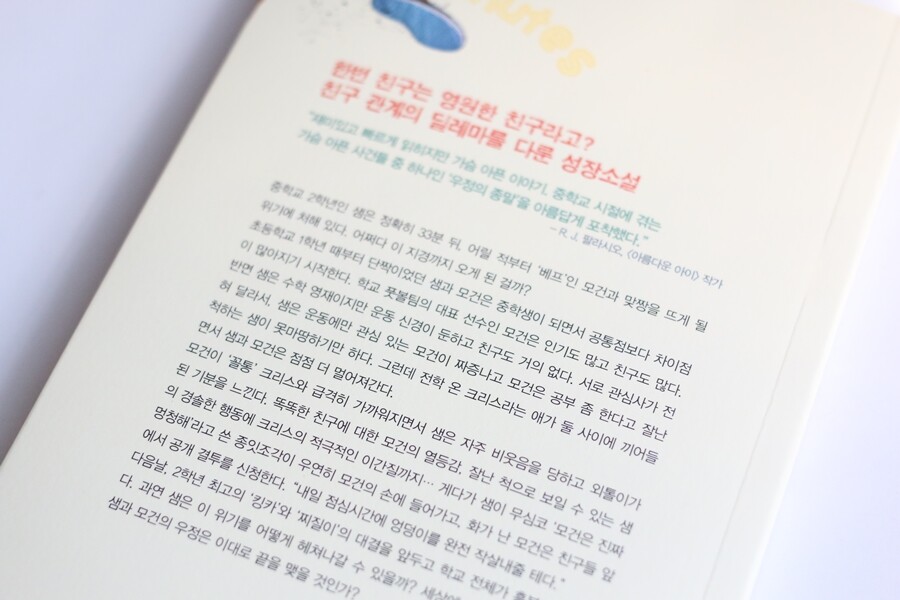 한번 친구는 영원한 친구라고?
친구 관계의 딜레마를 다룬 성장소설
"재미있고 빠르게 읽히지만 가슴 아픈 이야기. 중학교 시절에 겪는
가슴 아픈 사건들 중 하나인 '우정의 종말'을 아름답게 포착했다."
~ R. J. 팔라시오, 《아름다운 아이》 작가
중학교 2학년인 샘은 정확히 33분 뒤, 어릴 적부터 '베프'인 모건과 맞짱을 뜨게 될
위기에 처해 있다. 어쩌다 이 지경까지 오게 된 걸까?
초등학교 1학년 때부터 단짝이었던 샘과 모건은 중학생이 되면서 공통점보다 차이점
이 많아지기 시작한다. 학교 풋볼팀의 대표 선수인 모건은 인기도 많고 친구도 많다.
반면 샘은 수학 영재이지만 운동 신경이 둔하고 친구도 거의 없다. 서로 관심사가 전
혀 달라서, 샘은 운동에만 관심 있는 모건이 짜증나고 모건은 공부 좀 한다고 잘난
척하는 샘이 못마땅하기만 하다. 그런데 전학 온 크리스라는 애가 둘 사이에 끼어들
면서 샘과 모건은 점점 더 멀어져간다.
모건이 '꼴통' 크리스와 급격히 가까워지면서 샘은 자주 비웃음을 당하고 외톨이가
된 기분을 느낀다. 똑똑한 친구에 대한 모건의 열등감, 잘난 척으로 보일 수 있는 샘
의 경솔한 행동에 크리스의 적극적인 이간질까지… 게다가 샘이 무심코 '모건은 진짜
멍청해'라고 쓴 종잇조각이 우연히 모건의 손에 들어가고, 화가 난 모건은 친구들 앞
에서 공개 결투를 신청한다. "내일 점심시간에 엉덩이를 완전 작살내줄 테다."
다음날, 2학년 최고의 '킹카'와 '찌질이'의 대결을 앞두고 학교 전체가
다. 과연 샘은 이 위기를 어떻게 헤쳐나갈 수 있을까?
샘과 모건의 우정은 이대로 끝을 맺을 것인가?